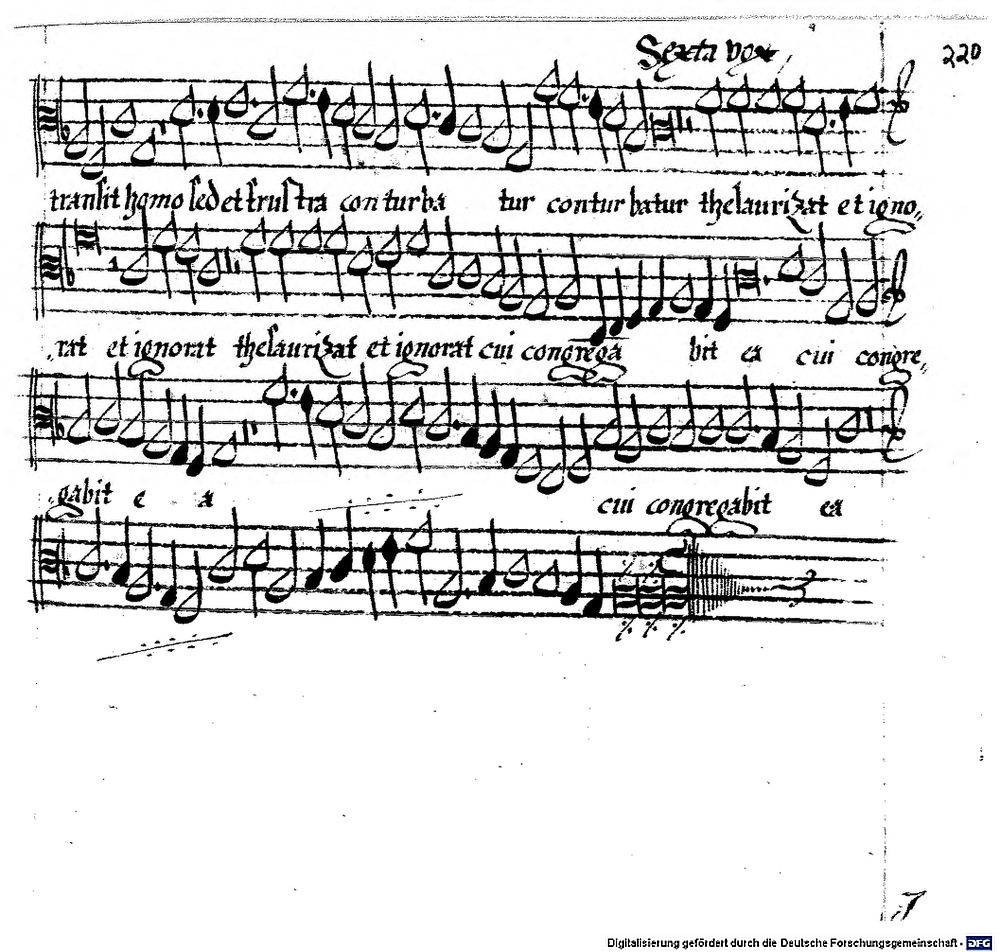 Sexta vox
220
transit homo sed et frustra conturba tur conturbatur thesaurizat et igno„
rat et ignorat thesaurizat et ignorat cui congrega bit ea cui congre„
gabit e a cui congregabit ea
Digitalisierung gefördert durch die Deutsche Forschungsgemeinschaft - DFG